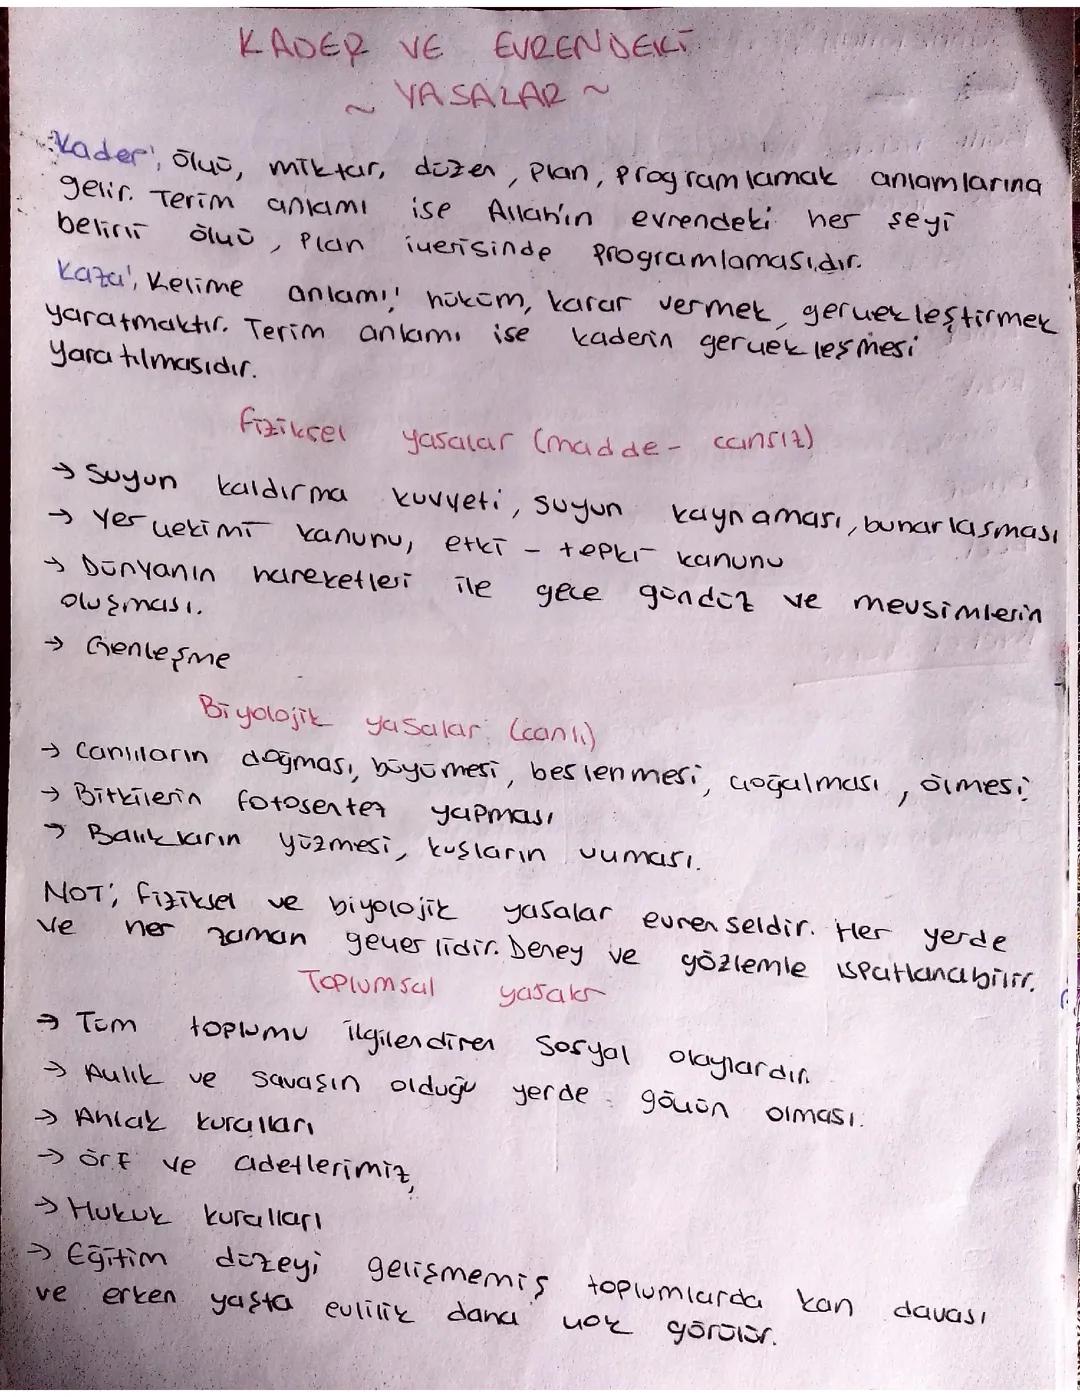 KADER VE EVRENDEKİ
~ YASALAR ~
Kader; ölçü, miktar, düzen, plan, programlamak anlamlarına
gelir. Terim anlamı ise Allah'ın evrendeki her şeyi
belirli ölçü, plan içerisinde programlamasıdır.
Kaza; Kelime anlamı; hüküm, karar vermek, gerçekleştirmek
yaratmaktır. Terim anlamı ise kaderin gerçekleşmesi
yaratılmasıdır.
fiziksel yasalar (madde - cansız)
→ Suyun kaldırma kuvveti, suyun kaynaması, buharlaşması
→ Yer çekimi kanunu, etki - tepki kanunu
→ Dünyanın hareketleri ile gece gündüz ve mevsimlerin
oluşması.
→ Genleşme
Biyolojik yasalar (canlı)
→ Canlıların doğması, büyümesi, beslenmesi, çoğalması, ölmesi
→ Bitkilerin fotosentez yapması
→ Balıkların yüzmesi, kuşların uçması.
NOT; fiziksel ve biyolojik yasalar evrenseldir. Her yerde
ve her zaman geçerlidir. Deney ve gözlemle ispatlanabilir.
Toplumsal yasalar
→ Tüm toplumu ilgilendiren sosyal olaylardır.
→ Açlık ve savaşın olduğu yerde göçün olması.
→ Ahlak kuralları
→ örf ve adetlerimiz,
→ Hukuk kuralları
→ Eğitim düzeyi gelişmemiş toplumlarda kan davası
ve erken yaşta evlilik daha çok görülür.